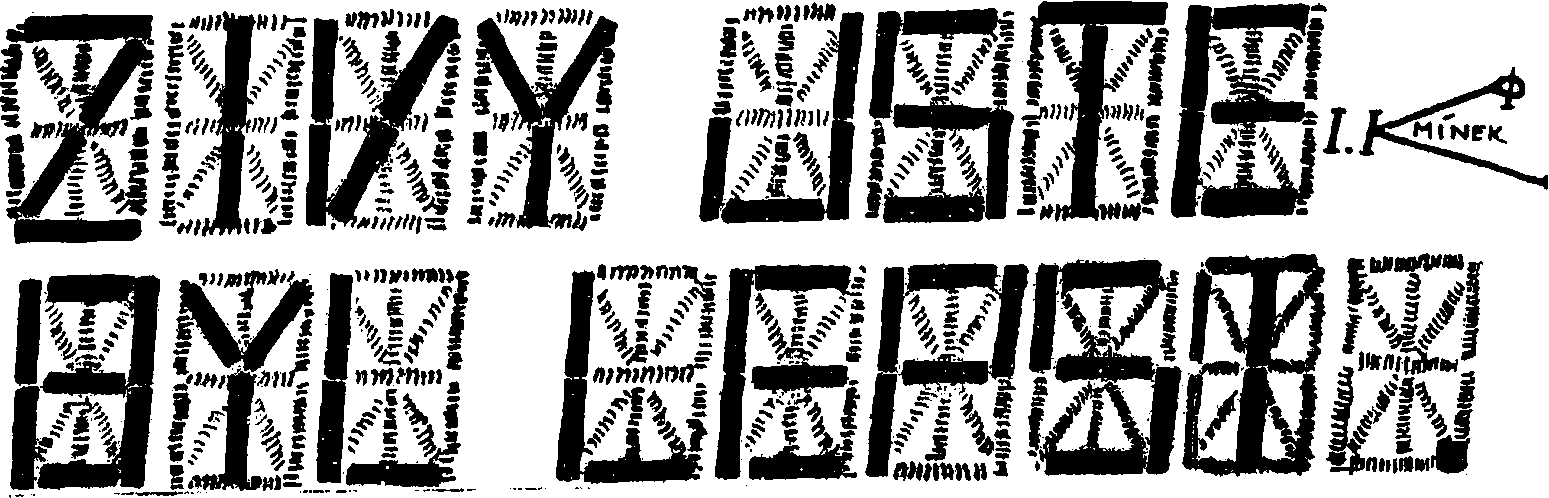 ZIVY JSTE
BYL LEPSI.
I. KMÍNEK